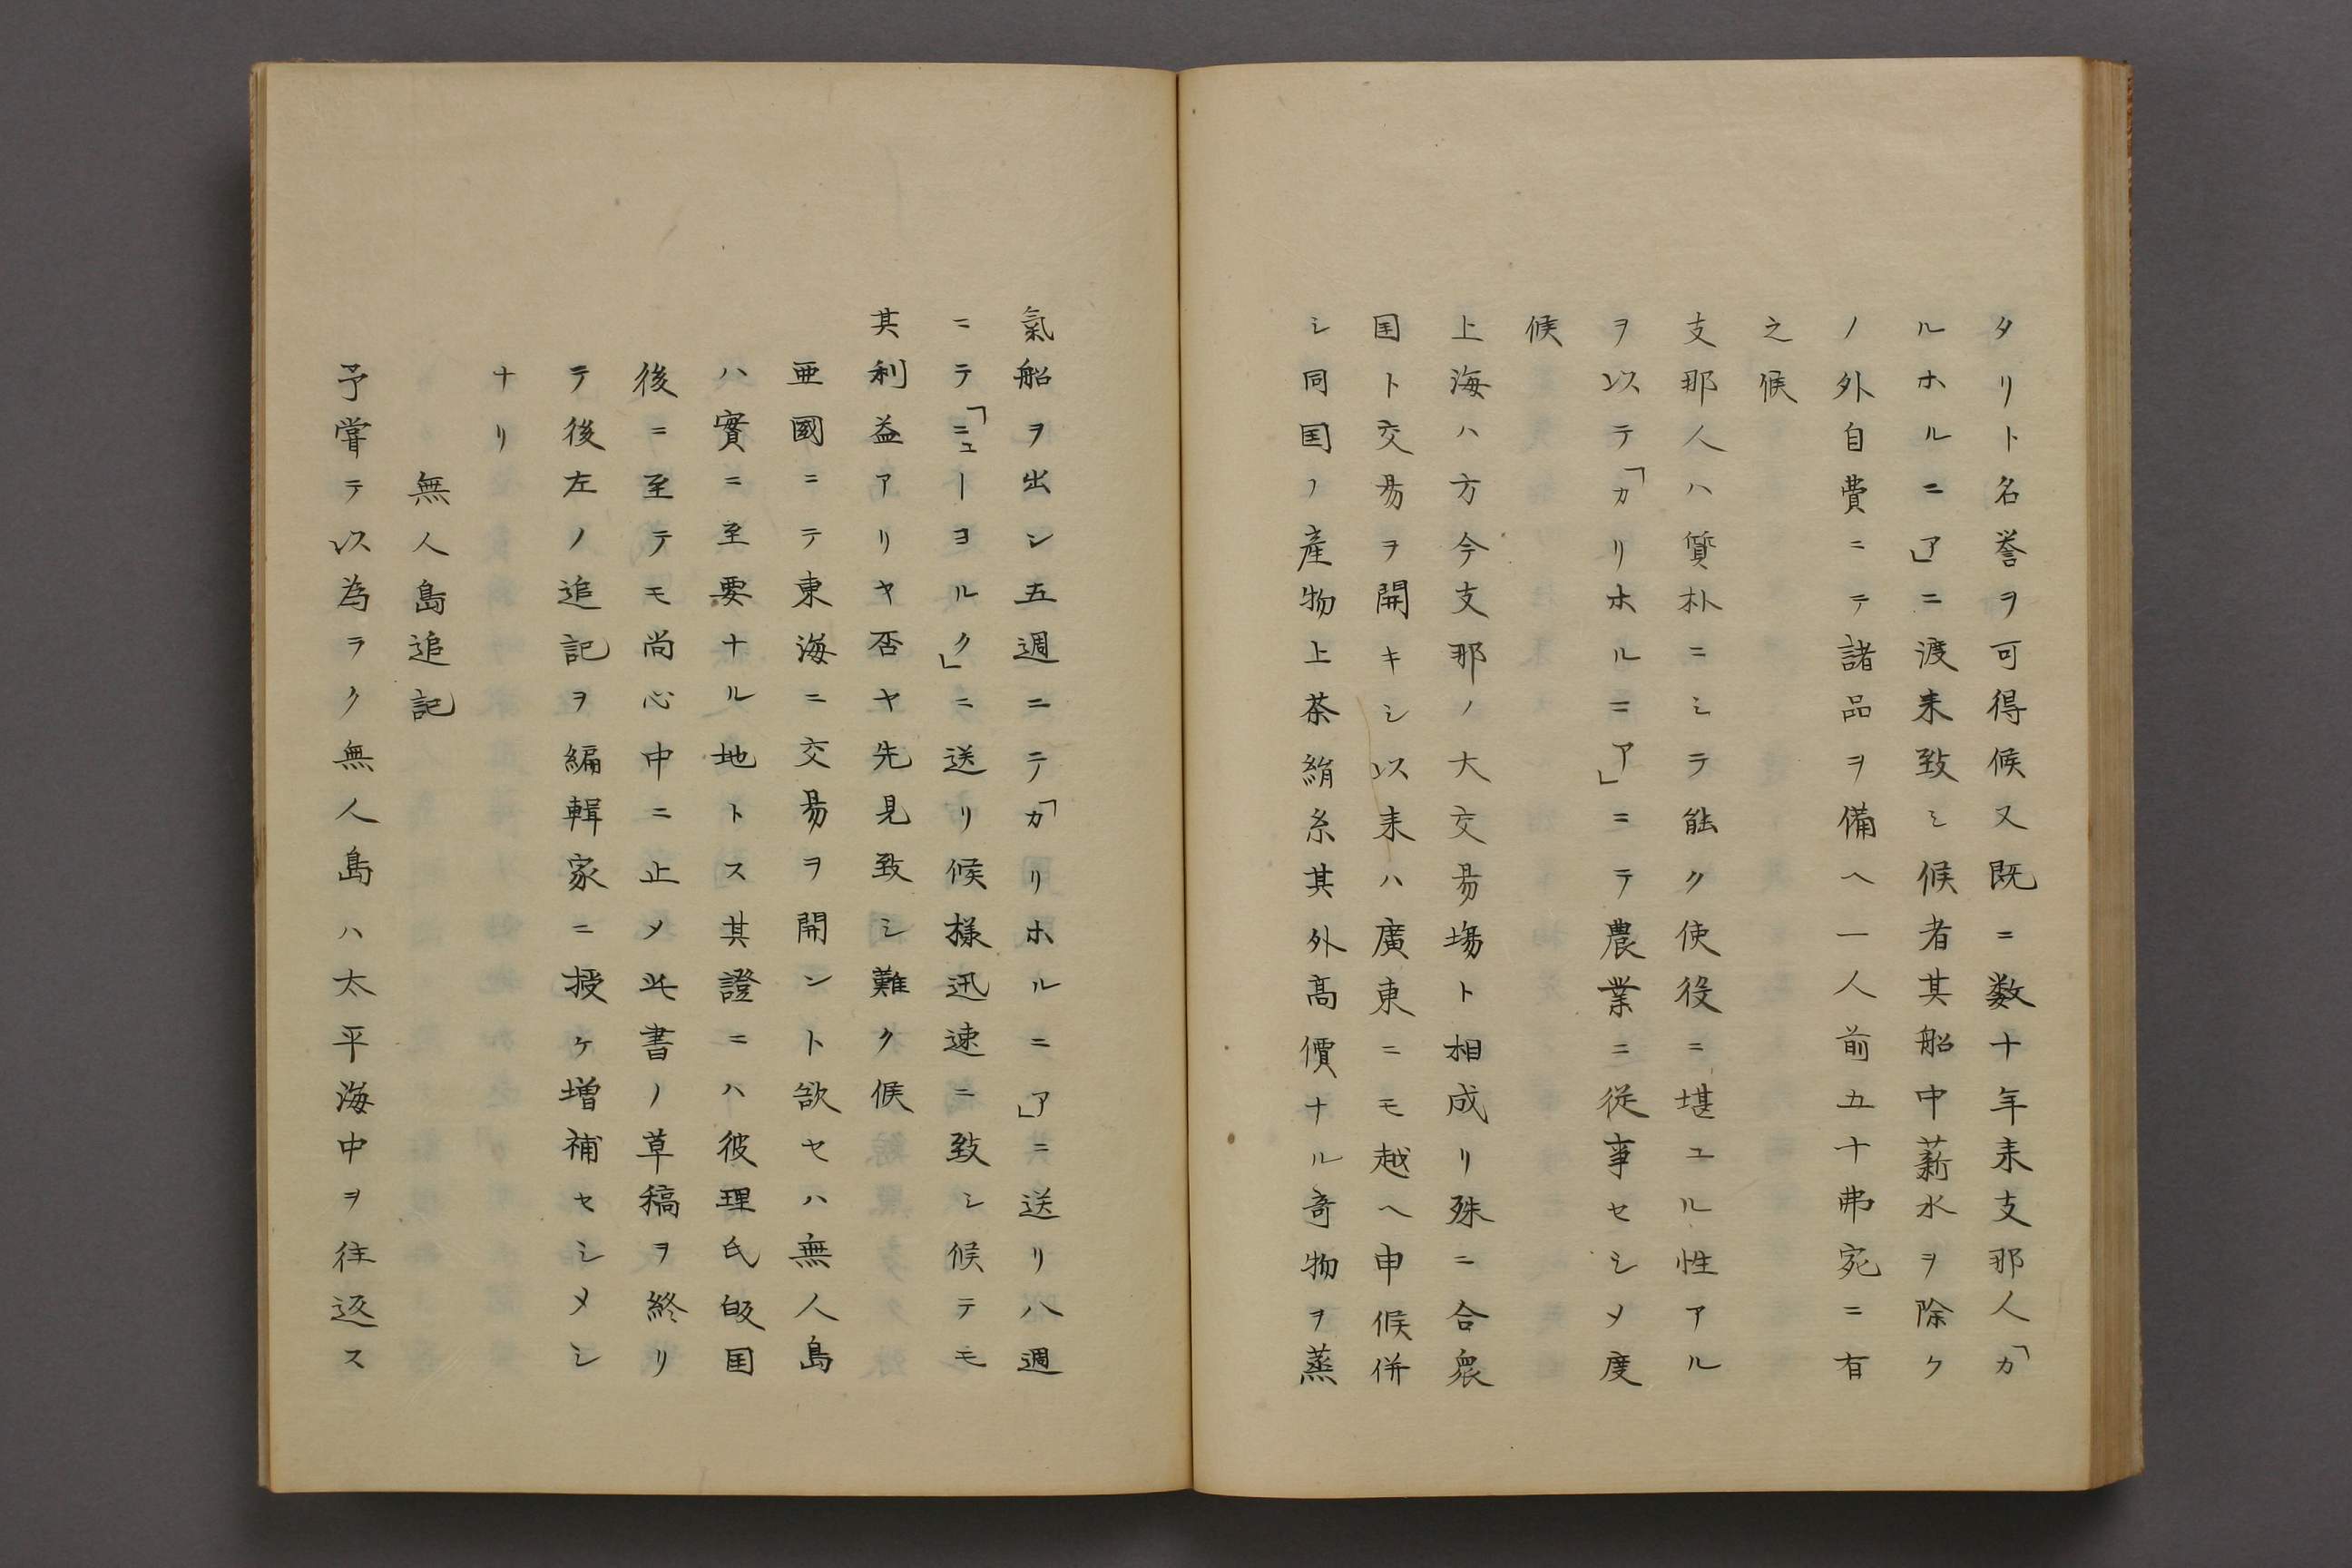 タリト名誉ヲ可得候又既ニ数十年来支那人「カ
ルホルニア」ニ渡来致シ候者其船中薪水ヲ除ク
ノ外自費ニテ諸品ヲ備ヘ一人前五十弗宛ニ有
之候
支那人ハ質朴ニシテ能ク使役ニ堪ユル性アル
ヲ以テ「カリホルニア」ニテ農業ニ従事セシメ度
候
上海ハ方今支那ノ大交易場ト相成リ殊ニ合衆
国ト交易ヲ開キシ以来ハ廣東ニモ越ヘ申候併
シ同国ノ産物上茶絹糸其外高價ナル奇物ヲ蒸
氣船ヲ出シ五週ニテ「カリホルニア」ニ送リ八週
ニテ「ニューヨルク」ニ送リ候様迅速ニ致シ候テモ
其利益アリヤ否ヤ先見致シ難ク候
亜國ニテ東海ニ交易ヲ開ント欲セハ無人島
ハ實ニ至要ナル地トス其證ニハ彼理氏皈国
後ニ至テモ尚心中ニ止メ此書ノ草稿ヲ終リ
テ後左ノ追記ヲ編輯家ニ授ケ増補セシメシ
ナリ
無人島追記
予嘗テ以為ラク無人島ハ太平海中ヲ往返ス